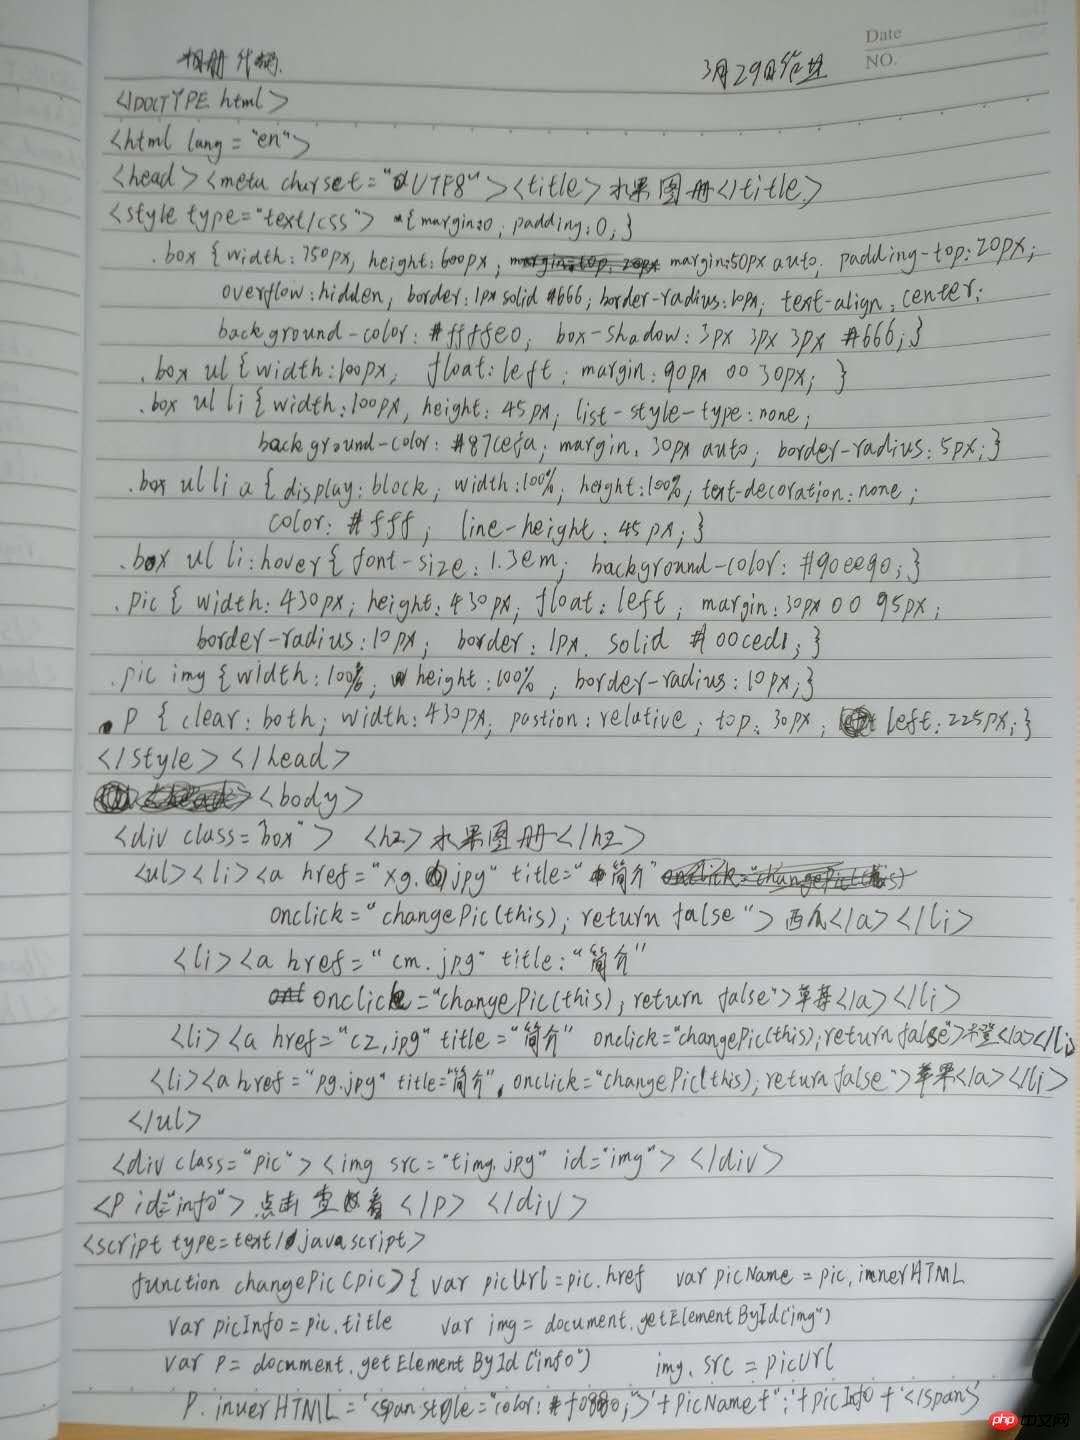 相册代码. 3月29日作业
Date
NO.
<!DOCTYPE html>
<html lang="en">
<head><meta charset="UTF8"><title>水果图册</title>
<style type="text/css"> *{margin:0; padding:0;}
.box {width:750px; height:600px; margin:50px auto; padding-top:20px;
overflow:hidden; border:1px solid #666; border-radius:10px; text-align:center;
background-color:#ffffe0; box-shadow:3px 3px 3px #666;}
.box ul {width:100px; float:left; margin:90px 0 0 30px; }
.box ul li {width:100px; height:45px; list-style-type:none;
background-color:#87cefa; margin:30px auto; border-radius:5px;}
.box ul li a {display:block; width:100%; height:100%; text-decoration:none;
color:#fff; line-height:45px;}
.box ul li:hover{font-size:1.3em; background-color:#90ee90;}
.pic {width:430px; height:430px; float:left; margin:30px 0 0 95px;
border-radius:10px; border:1px solid #00ced1;}
.pic img {width:100%; height:100%; border-radius:10px;}
P {clear:both; width:430px; postion:relative; top:30px; left:225px;}
</style></head>
<body>
<div class="box"> <h2>水果图册</h2>
<ul><li><a href="xg.jpg" title="简介"
onclick="changePic(this); return false">西瓜</a></li>
<li><a href="cm.jpg" title:"简介"
onclick="changePic(this); return false">草莓</a></li>
<li><a href="cz.jpg" title="简介" onclick="changePic(this); return false"></a></li>
<li><a href="pg.jpg" title="简介" onclick="changePic(this); return false">苹果</a></li>
</ul>
<div class="pic"><img src="timg.jpg" id="img"></div>
<P id="info">点击查看</p></div>
<script type=text/javascript>
function changePic(pic){var picUrl=pic.href var picName=pic.innerHTML
var picInfo=pic.title var img=document.getElementById("img")
var P=document.getElementById("info") img.src=picUrl
P.innerHTML='<span style="color:#f0880;">'+picName+":"+picInfo+'</span>'
php中文网